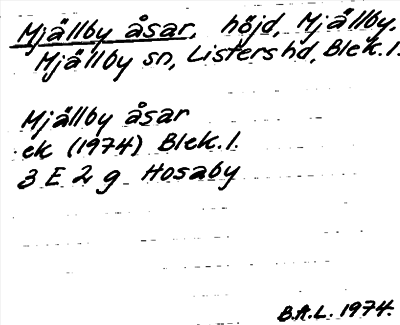 Mjällby åsar, höjd, Mjällby,
Mjällby sn, Listers hd, Blek. l.
Mjällby åsar
ek (1974) Blek. l.
3 E 2 g Hosaby
B.A.L. 1974.